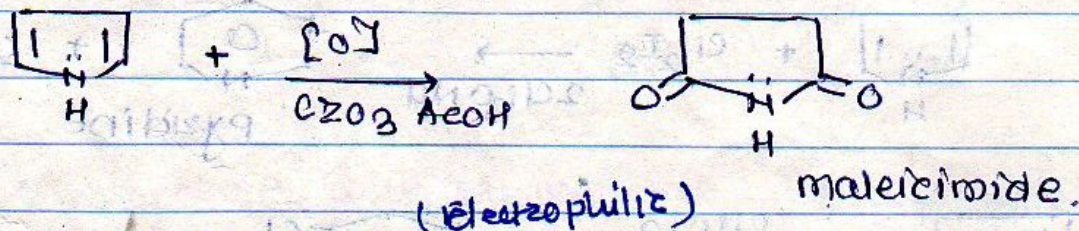 N
H
+ [O]
CrO3 AcOH
O N O
H
(Electrophilic)
maleicimide.